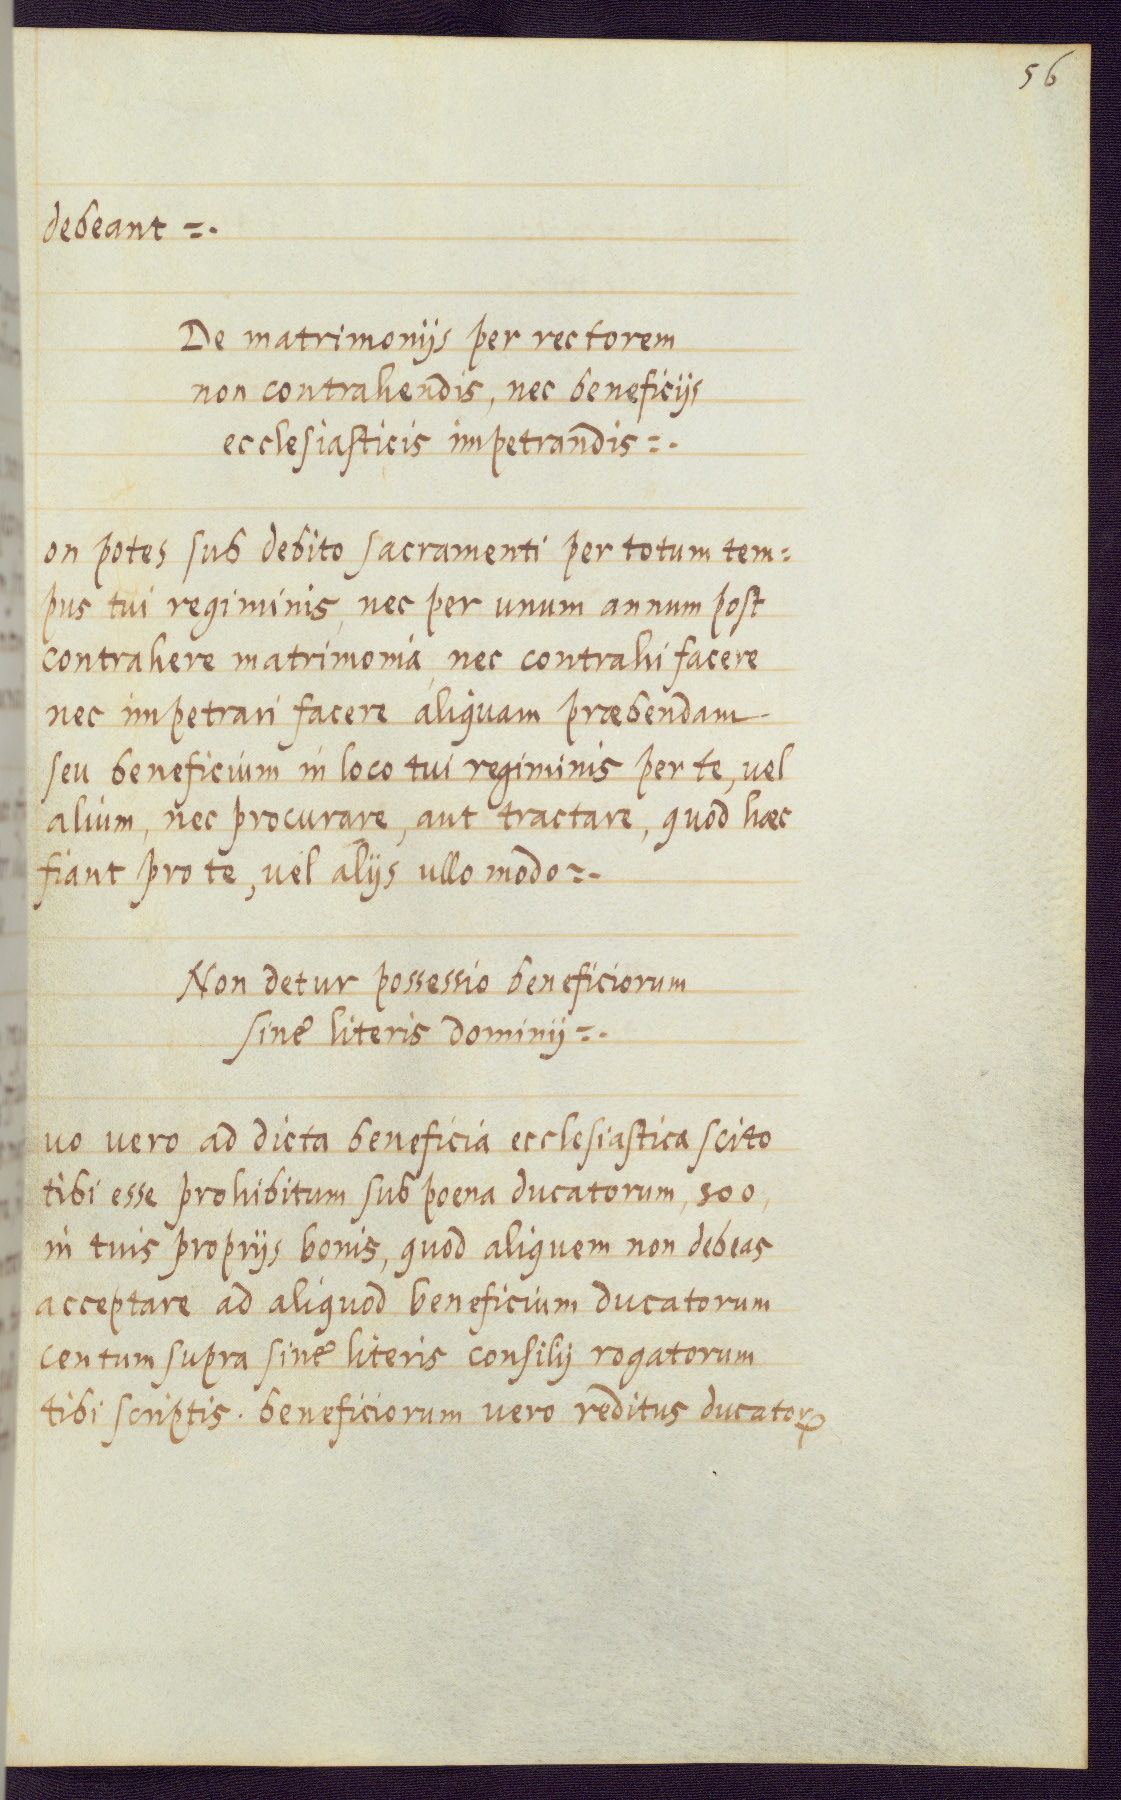 56
debeant =.
De matrimonijs per rectorem
non contrahendis, nec beneficijs
ecclesiasticis impetrandis=.
on potes sub debito sacramenti per totum tem=
pus tui regiminis, nec per unum annum post
contrahere matrimonia, nec contrahi facere
nec impetrari facere aliquam præbendam
seu beneficium in loco tui regiminis per te, vel
alium, nec procurare, aut tractare, quod hæc
fiant pro te, vel alijs ullo modo=.
Non detur possessio beneficiorum
sine literis dominij=.
uo vero ad dicta beneficia ecclesiastica scito
tibi esse prohibitum sub poena ducatorum, 300,
in tuis proprijs bonis, quod aliquem non debeas
acceptare ad aliquod beneficium ducatorum
centum supra sine literis consilij rogatorum
tibi scriptis. beneficiorum vero reditus ducatorꝝ